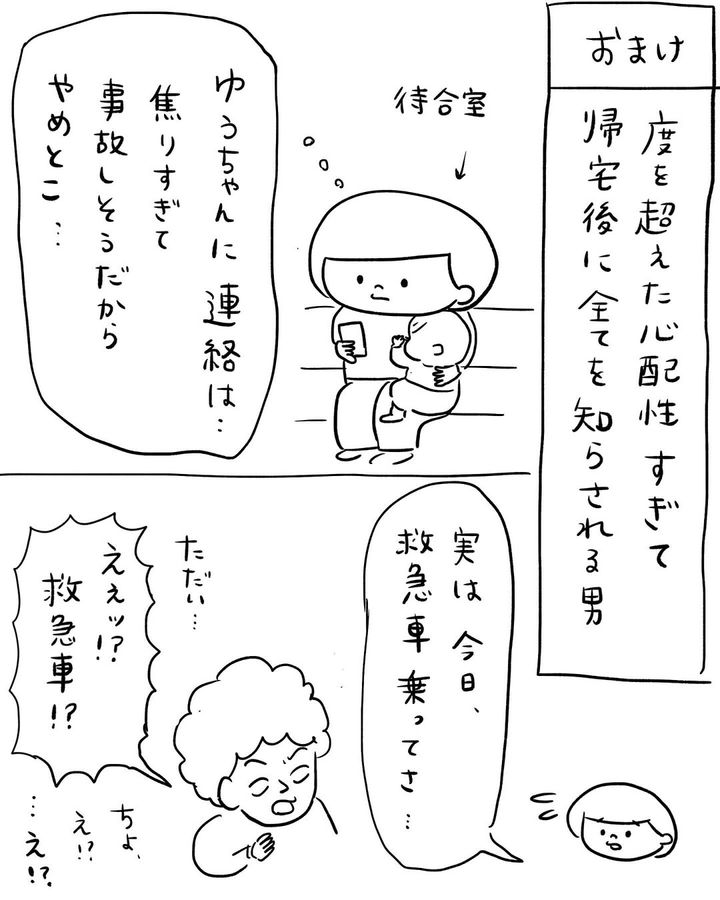 おまけ
度を超えた心配性すぎて
帰宅後に全てを知らされる男
待合室
ゆうちゃんに連絡は…
焦りすぎて
事故しそうだから
やめとこ…
実は今日、
救急車乗ってさ…
ただい…
ええッ!?
救急車!?
ちょ、
え!?
…え!?